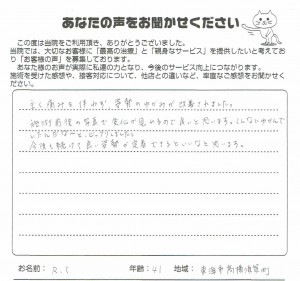 あなたの声をお聞かせください
この度は当院をご利用頂き、ありがとうございました。
当院では、大切なお客様に「最高の治療」と「親身なサービス」を提供したいと考えており「お客様の声」を募集しております。
あなた様のお声が実際に私達の力となり、今後のサービス向上につながります。
施術を受けた感想や、接客対応について、他店との違いなど、率直なご感想をお聞かせください。
全く痛みを伴わず、姿勢のゆがみが改善されました。
施術前後の写真で変化が見れるので良いと思います。こんなにゆがんで
いたんだな〜と、ビックリしました。
今後も続けて良い姿勢が定着できるといいなと思います。
お名前： R.S 年齢： 41 地域： 東海市高横須賀町